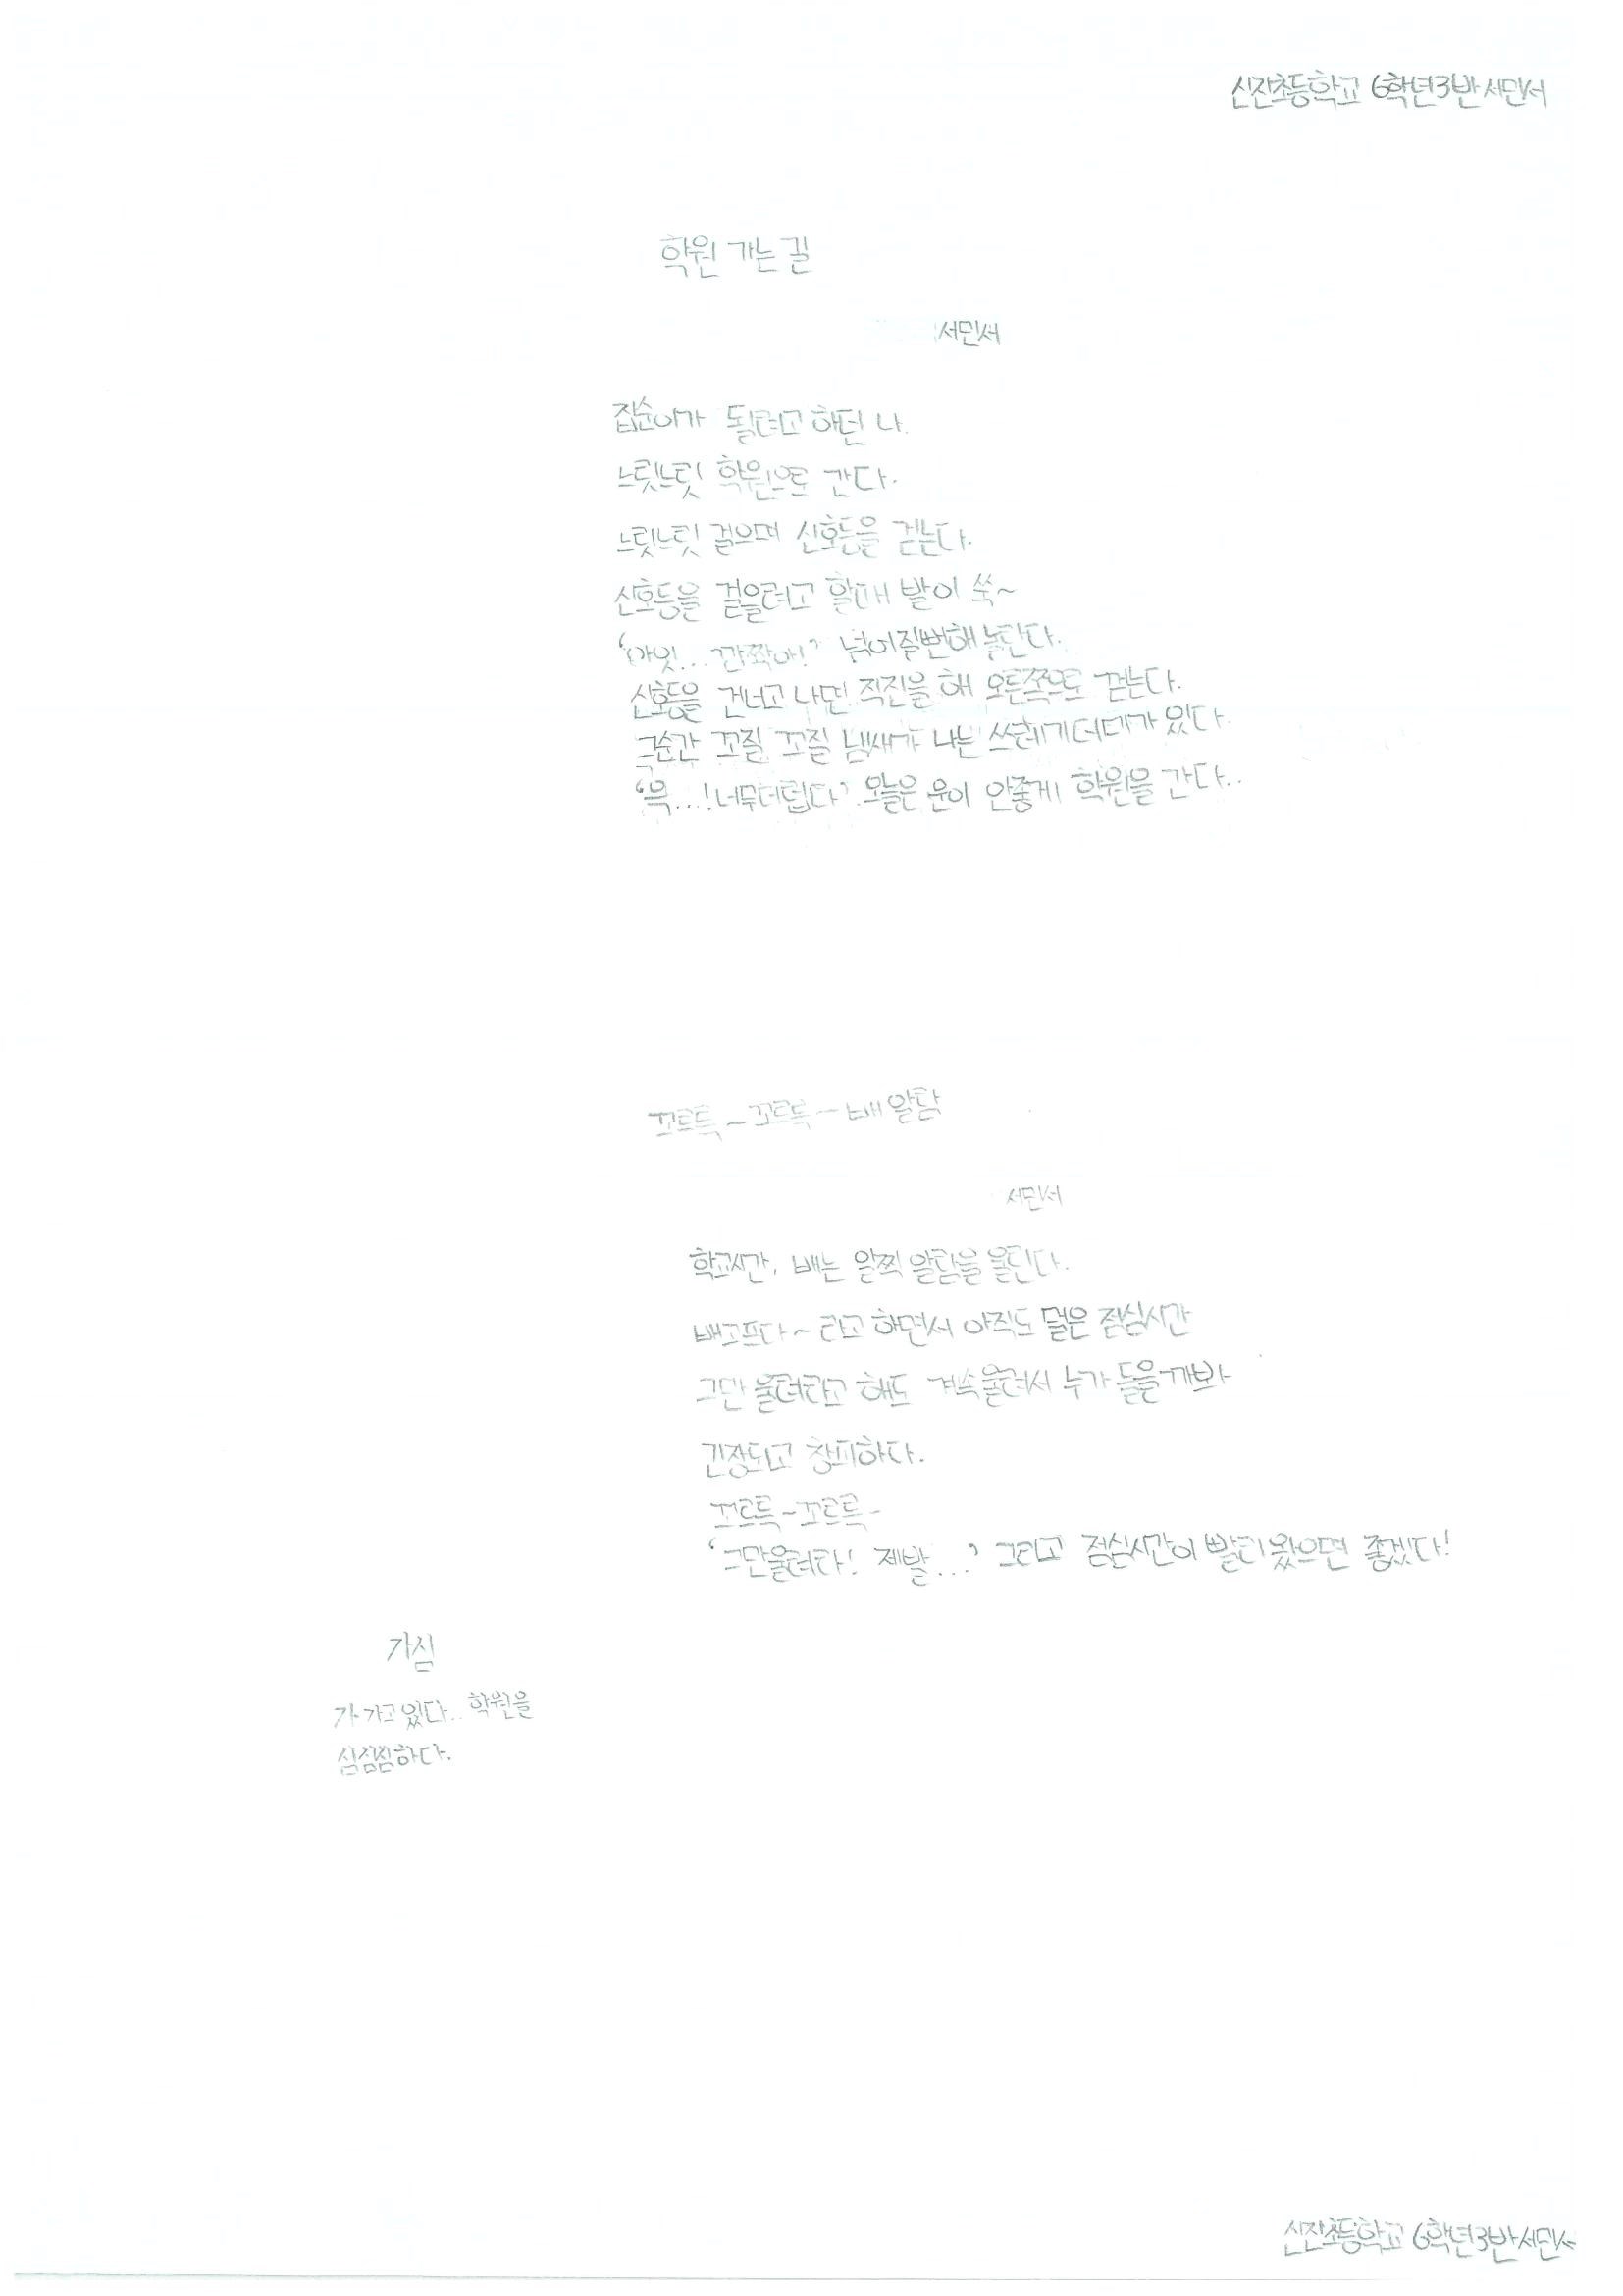 신진초등학교 6학년3반 서민서
학원 가는 길
서민서
집순이가 될려고 하던 나.
느릿느릿 학원으로 간다.
느릿느릿 걸으며 신호등을 걷는다.
신호등을 걸을려고 할때 발이 쑥~
'아잇... 깜짝아!' 넘어질뻔해 놀란다.
신호등을 건너고 나면 직진을 해 오른쪽으로 걷는다.
그순간 꼬질 꼬질 냄새가 나는 쓰레기더미가 있다.
'윽...!너무더럽다' 오늘은 운이 안좋게 학원을 간다..
꼬르륵-꼬르륵-배 알람
서민서
학교시간, 배는 일찍 알람을 울린다.
배고프다~ 라고 하면서 아직도 멀은 점심시간
그만 울려라고 해도 계속울려서 누가 들을까봐
긴장되고 창피하다.
꼬르륵-꼬르륵-
'그만울려라! 제발...' 그리고 점심시간이 빨리 왔으면 좋겠다!
가심
가 가고 있다.. 학원을
심 심찜하다.
신진초등학교 6학년3반 서민서